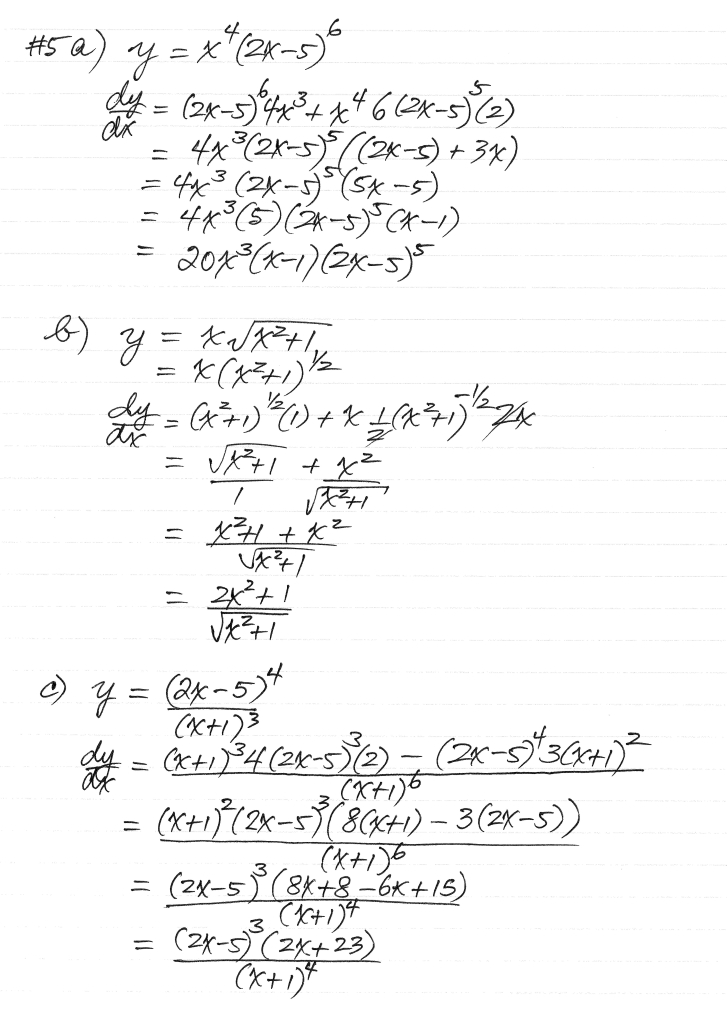 #5 a) y = x⁴(2x-5)⁶
dy/dx = (2x-5)⁶4x³ + x⁴ 6(2x-5)⁵(2)
= 4x³(2x-5)⁵((2x-5) + 3x)
= 4x³(2x-5)⁵(5x-5)
= 4x³(5)(2x-5)⁵(x-1)
= 20x³(x-1)(2x-5)⁵
b) y = x√(x²+1)
= x(x²+1)^½
dy/dx = (x²+1)^½(1) + x ½(x²+1)^-½ 2x
= √(x²+1)/1 + x²/√(x²+1)
= (x²+1 + x²)/√(x²+1)
= (2x²+1)/√(x²+1)
c) y = (2x-5)⁴/(x+1)³
dy/dx = ((x+1)³4(2x-5)³(2) - (2x-5)⁴3(x+1)²)/(x+1)⁶
= (x+1)²(2x-5)³(8(x+1) - 3(2x-5))/(x+1)⁶
= (2x-5)³(8x+8-6x+15)/(x+1)⁴
= (2x-5)³(2x+23)/(x+1)⁴